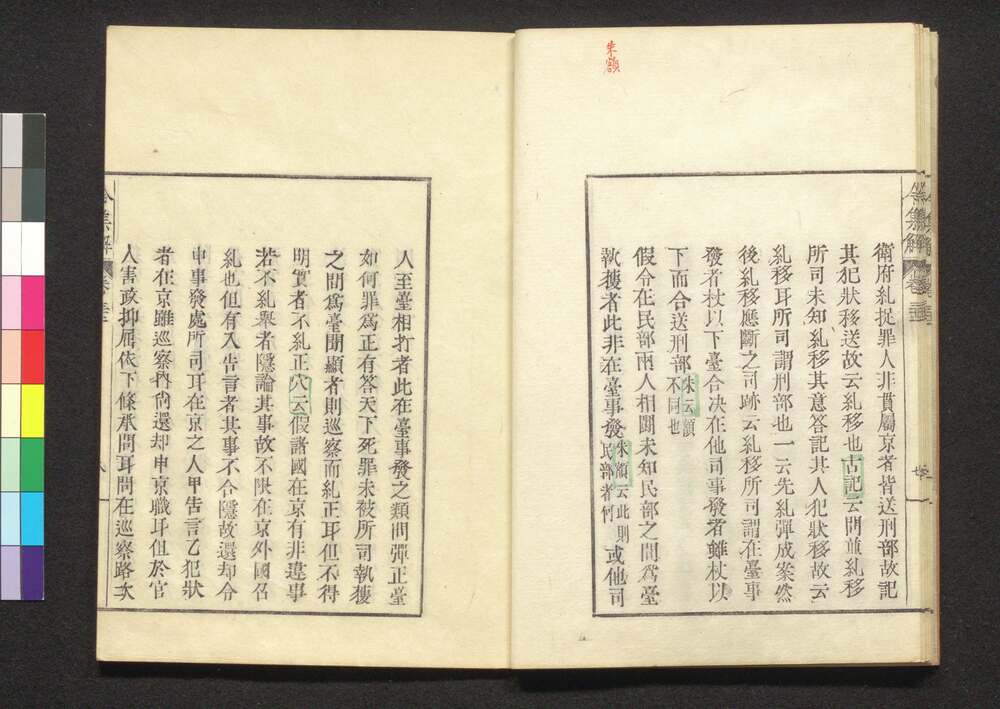 朱額
令集解 卷三
衛府糺捉罪人非貫屬京者皆送刑部故記
其犯狀移送故云糺移也古記云問並糺移
所司未知糺移其意答記其人犯狀移故云
糺移耳所司謂刑部也一云先糺彈成案然
後糺移應斷之司跡云糺移所司謂在臺事
發者杖以下臺合决在他司事發者雖杖以
下而合送刑部朱云額不同也
假令在民部兩人相鬪未知民部之間爲臺
執獲者此非在臺事發朱額云此則民部者何或他司
人至臺相打者此在臺事發之類問彈正臺
如何罪爲正有答天下死罪未被所司執獲
之間爲臺聞顯者則巡察而糺正耳但不得
明實者不糺正穴云假諸國在京有非違事
若不糺衆者隱論其事故不限在京外國召
糺也但有入告言者其事不合隱故還却令
申事發處所司耳在京之人甲告言乙犯狀
者在京雖巡察內尚還却申京職耳但於官
人害政抑屈依下條承問耳問在巡察路次
令集解